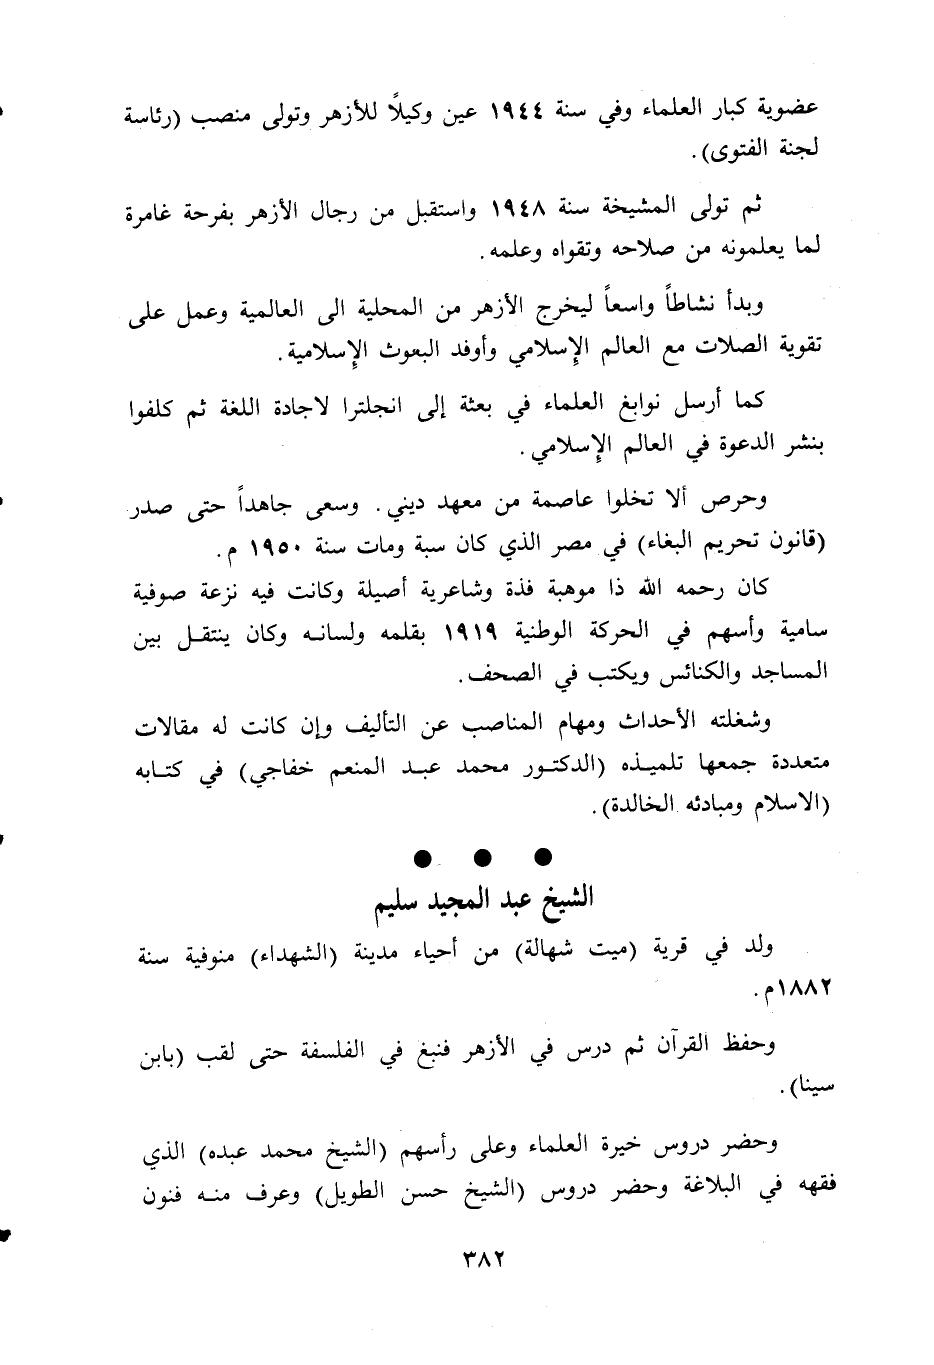 عضوية كبار العلماء وفي سنة ١٩٤٤ عين وكيلاً للأزهر وتولى منصب (رئاسة
لجنة الفتوى).
ثم تولى المشيخة سنة ١٩٤٨ واستقبل من رجال الأزهر بفرحة غامرة
لما يعلمونه من صلاحه وتقواه وعلمه.
وبدأ نشاطاً واسعاً ليخرج الأزهر من المحلية الى العالمية وعمل على
تقوية الصلات مع العالم الإسلامي وأوفد البعوث الإسلامية.
كما أرسل نوابغ العلماء في بعثة إلى انجلترا لاجادة اللغة ثم كلفوا
بنشر الدعوة في العالم الإسلامي.
وحرص ألا تخلوا عاصمة من معهد ديني. وسعى جاهداً حتى صدر
(قانون تحريم البغاء) في مصر الذي كان سبة ومات سنة ١٩٥٠ م.
كان رحمه الله ذا موهبة فذة وشاعرية أصيلة وكانت فيه نزعة صوفية
سامية وأسهم في الحركة الوطنية ١٩١٩ بقلمه ولسانه وكان ينتقل بين
المساجد والكنائس ويكتب في الصحف.
وشغلته الأحداث ومهام المناصب عن التأليف وإن كانت له مقالات
متعددة جمعها تلميذه (الدكتور محمد عبد المنعم خفاجي) في كتابه
(الاسلام ومبادئه الخالدة).
● ● ●
الشيخ عبد المجيد سليم
ولد في قرية (ميت شهالة) من أحياء مدينة (الشهداء) منوفية سنة
١٨٨٢م.
وحفظ القرآن ثم درس في الأزهر فنبغ في الفلسفة حتى لقب (بابن
سينا).
وحضر دروس خيرة العلماء وعلى رأسهم (الشيخ محمد عبده) الذي
فقهه في البلاغة وحضر دروس (الشيخ حسن الطويل) وعرف منه فنون
٣٨٢